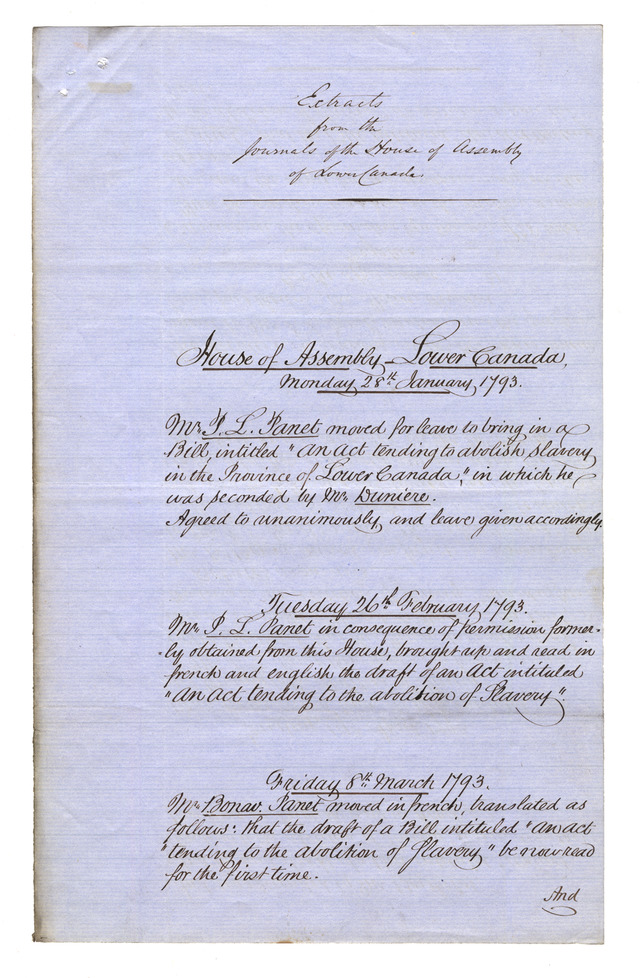 Extracts
from the
Journals of the House of Assembly
of Lower Canada.
House of Assembly – Lower Canada,
Monday 28th January, 1793.
Mr. P. L. Panet moved for leave to bring in a
Bill, intitled "an act tending to abolish slavery
in the Province of Lower Canada," in which he
was seconded by Mr. Duniere.
Agreed to unanimously, and leave given accordingly.
Tuesday 26th February, 1793.
Mr. P. L. Panet in consequence of permission former-
-ly obtained from this House, brought up and read in
french and english the draft of an Act intituled
"an act tending to the abolition of Slavery".
Friday 8th March 1793.
Mr. Bonav. Panet moved in french, translated as
follows: that the draft of a Bill intituled "an act
"tending to the abolition of Slavery" be now read
for the first time.
And